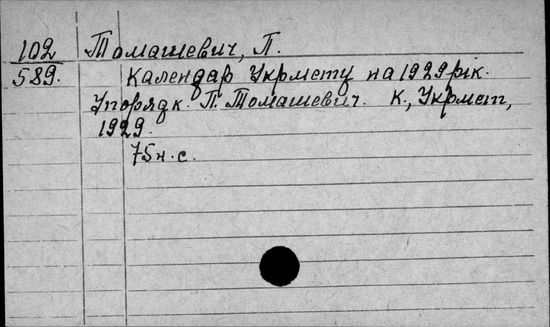 102 Томашевич, П.
589. Календар Укрмету на 1929 рік.
Упорядк. П. Томашевич. К., Укрмет,
1929.
75 н. с.